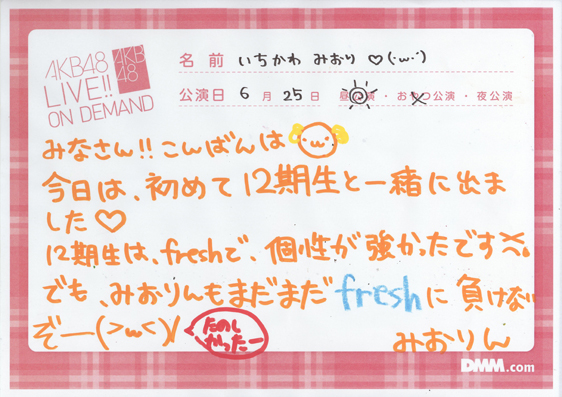 AKB48
LIVE!!
ON DEMAND
AKB
48
名前 いちかわ みおり ♡(·ω·)
公演日 6月25日 昼公演・おやつ公演・夜公演
みなさん!!こんばんは
今日は、初めて12期生と一緒に出ま
した♡
12期生は、freshで、個性が強かったです
でも、みおりんもまだまだfreshに負けない
ぞー(>ω<)/
たのし
かったー
みおりん
DMM.com